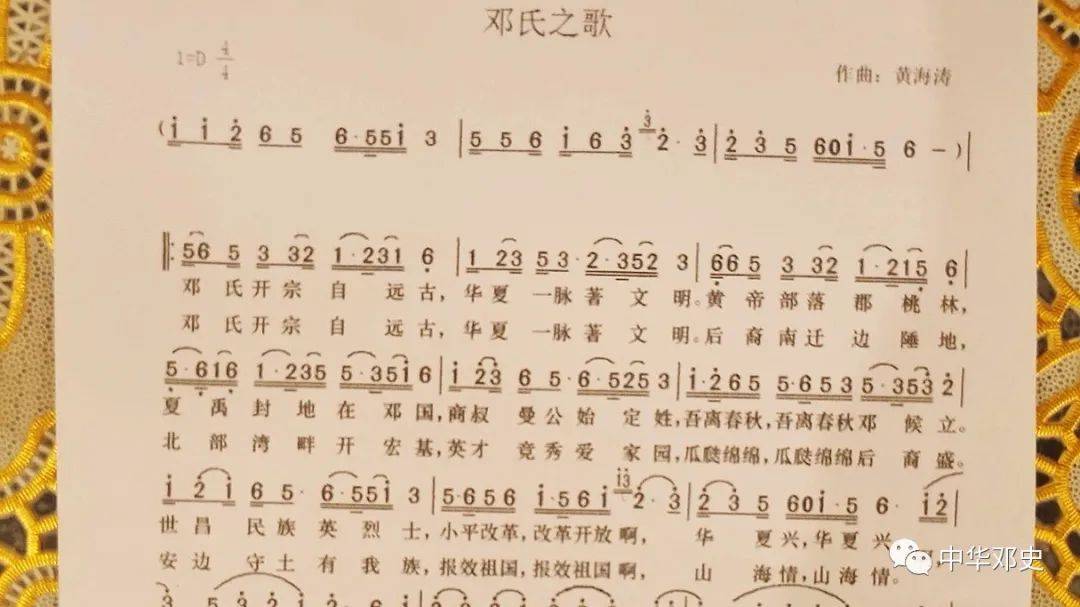 邓氏之歌
1=D 4/4
作曲：黄海涛
(i i 2 6 5 6·55i 3 | 5 5 6 i 6 3 3 2·3 | 2 3 5 60i·5 6 —) |
56 5 3 32 1·231 6 | 1 23 53·2·352 3 | 66 5 3 32 1·215 6
邓氏开宗自远古，华夏一脉著文明。黄帝部落郡桃林，
邓氏开宗自远古，华夏一脉著文明。后裔南迁边陲地，
5·616 1·235 5·351 6 | i 23 6 5·6·525 3 | i·265 5·653 5·353 2 |
夏禹封地在邓国，商叔曼公始定姓，吾离春秋，吾离春秋邓候立。
北部湾畔开宏基，英才竞秀爱家园，瓜瓞绵绵，瓜瓞绵绵后裔盛。
i 2 i 6 5·6·55i 3 | 5·656 i·56i i3 2·3 | 2 3 5 60i·5 6·i2 |
世昌民族英烈士，小平改革，改革开放啊，华夏兴，华夏兴
安边守土有我族，报效祖国，报效祖国啊，山海情，山海情。
中华邓史